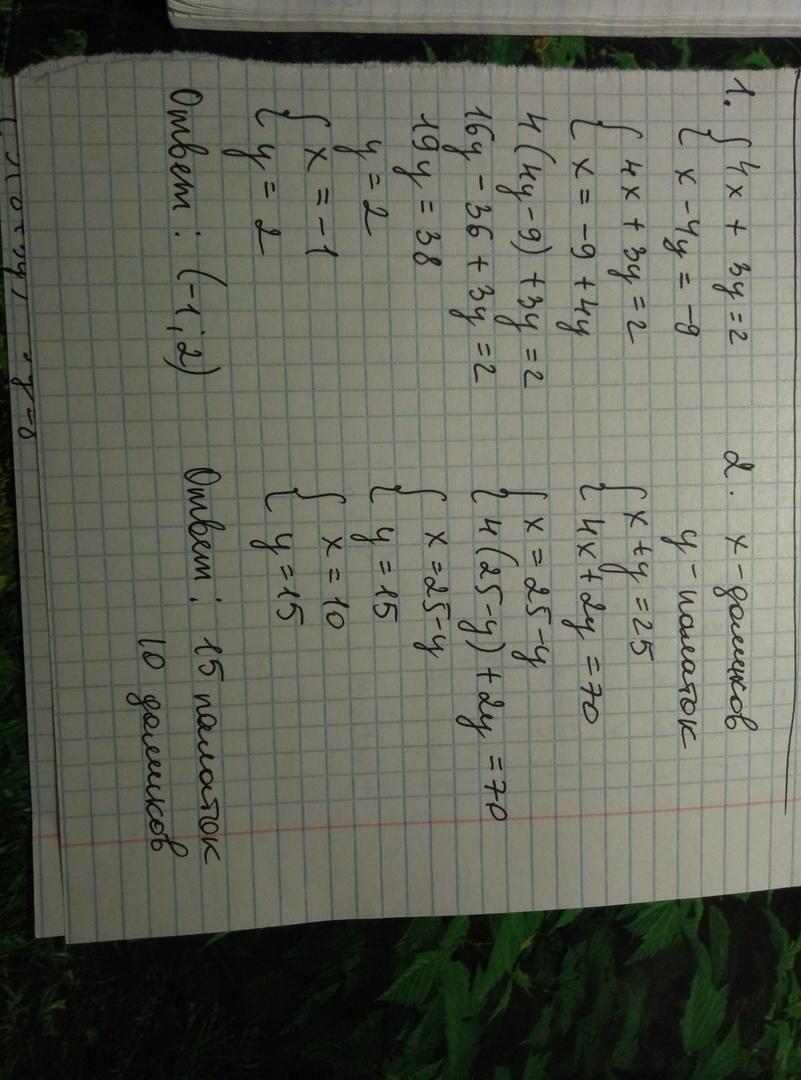 1. { 4x + 3y = 2
{ x - 4y = -9
{ 4x + 3y = 2
{ x = -9 + 4y
4(4y-9) + 3y = 2
16y - 36 + 3y = 2
19y = 38
y = 2
{ x = -1
{ y = 2
Ответ: (-1; 2)
2. x - домиков
y - палаток
{ x + y = 25
{ 4x + 2y = 70
{ x = 25-y
{ 4(25-y) + 2y = 70
{ x = 25-y
{ y = 15
{ x = 10
{ y = 15
Ответ: 15 палаток
10 домиков